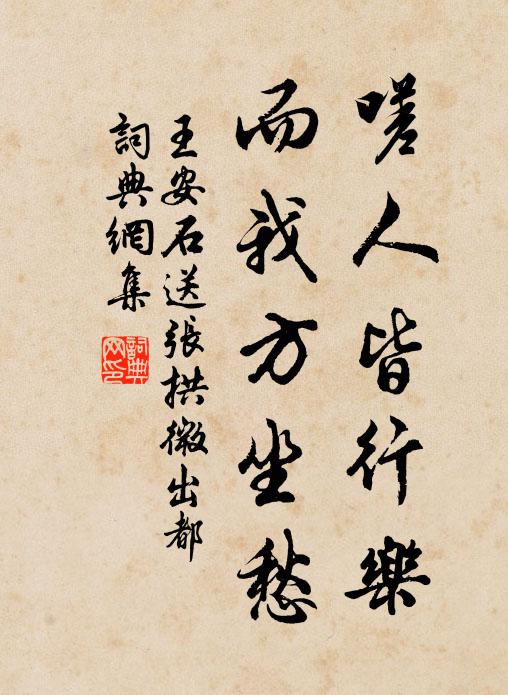 嗟人皆行樂
而我方坐愁
王安石送張拱微出都
詞典網集
詞典
网印